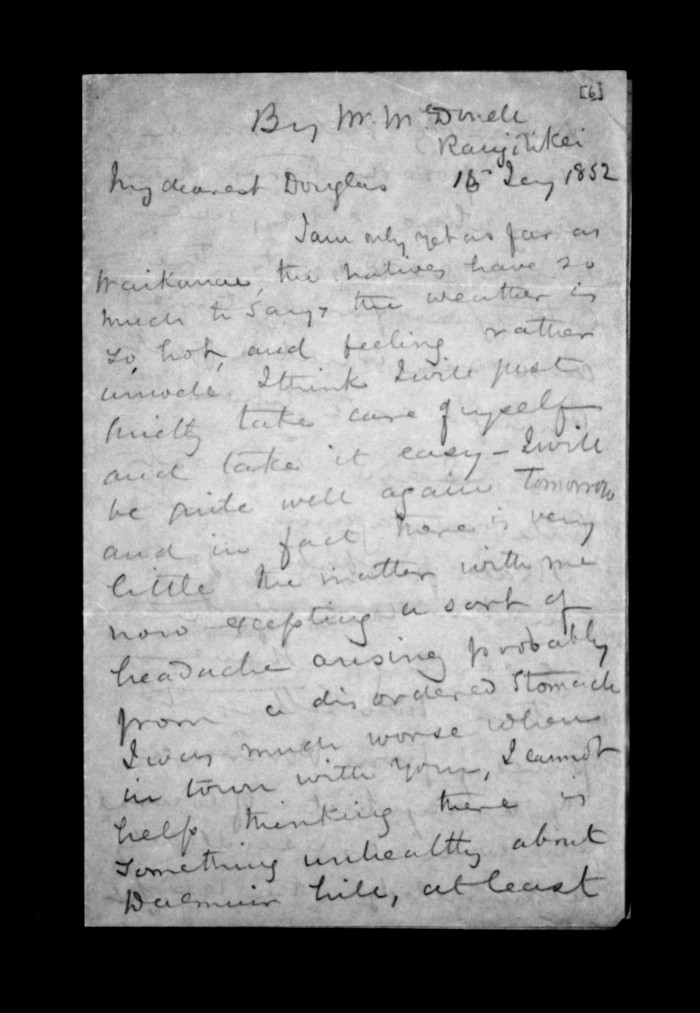 [6]
By Mr. McDonell
Rangitikei
My dearest Douglas 15 Jany 1852
I am only yet as far as
Waikanae, the natives have so
much to say & the weather is
so hot, and feeling rather
unwell I think I will just
quietly take care of myself
and take it easy - I will
be quite well again tomorrow
and in fact there is very
little the matter with me
now excepting a sort of
headache arising probably
from a disordered stomach
I was much worse when
in town with you, I cannot
help thinking there is
something unhealthy about
Dalmuir hill, at least